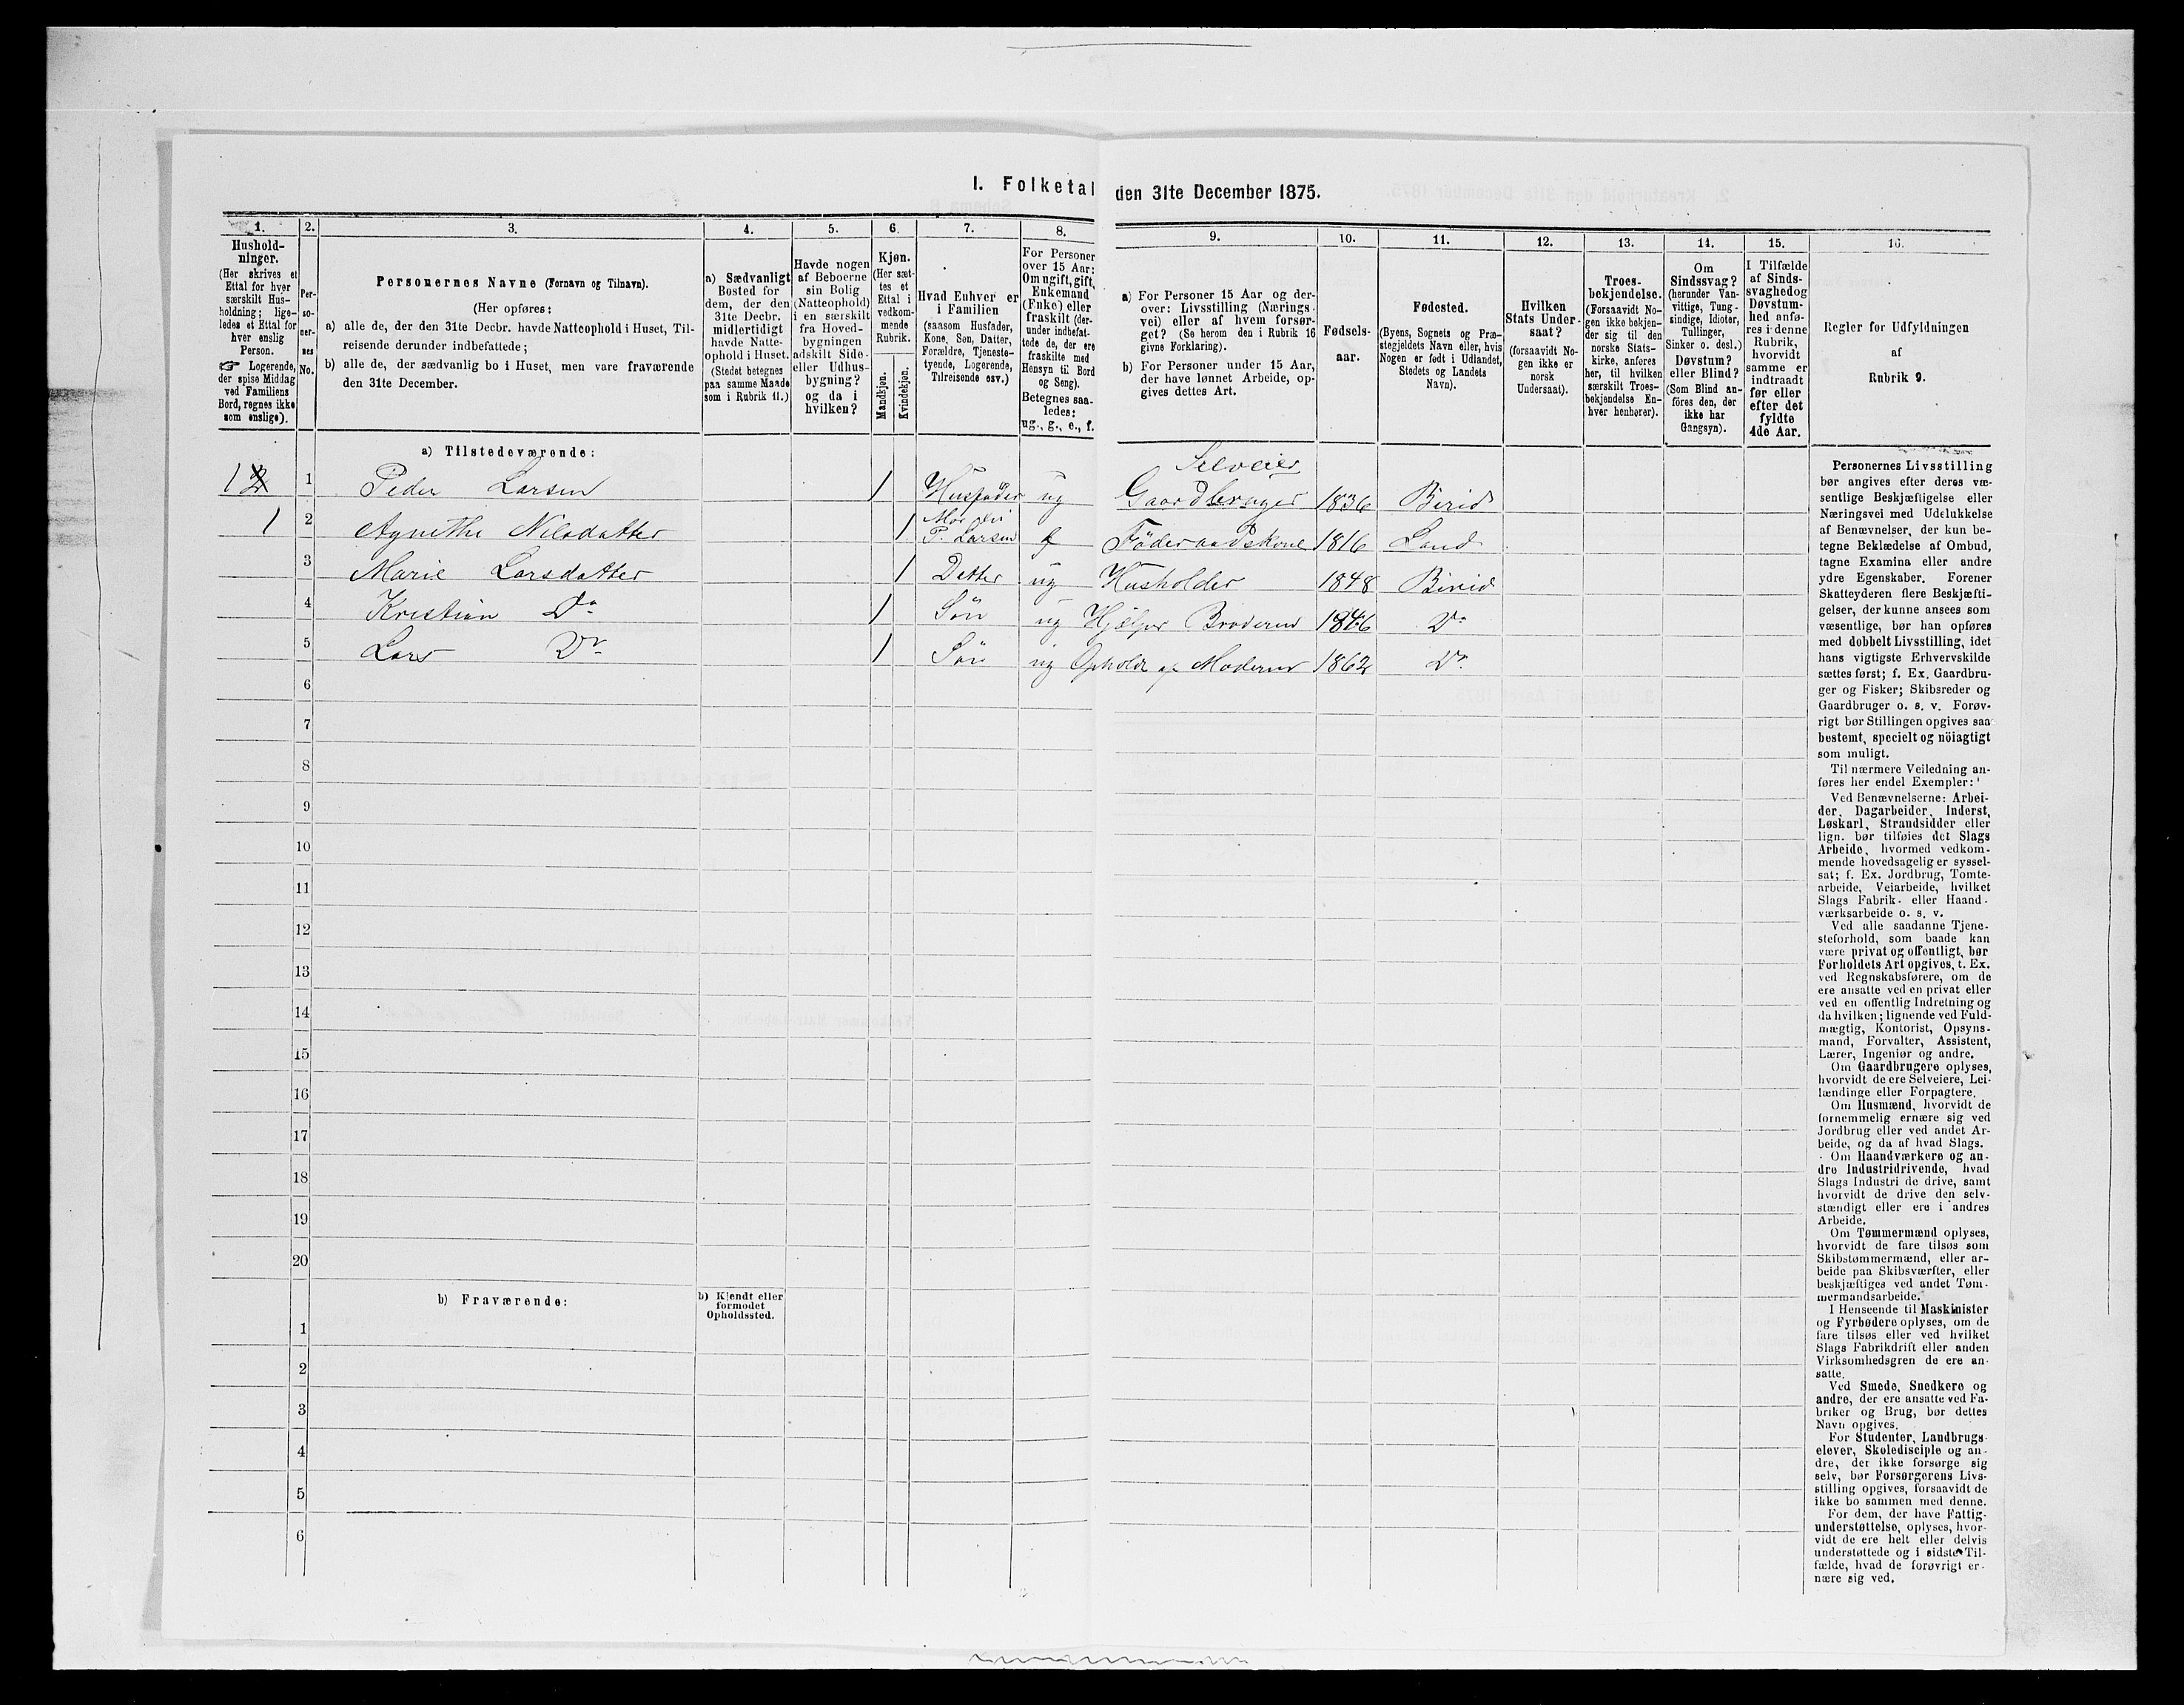 I. Folketal den 31te December 1875.
1. 2. 3. 4. 5. 6. 7. 8. 9. 10. 11. 12. 13. 14. 15. 16.
Hushold-
ninger.
(Her skrives et
Ettal for hver
særskilt Hus-
holdning; lige-
ledes et Ettal for
hver enslig
Person.
☞ Logerende,
der spise Middag
ved Familiens
Bord, regnes ikke
som enslige).
Per-
so-
ner-
nes
No.
Personernes Navne (Fornavn og Tilnavn).
(Her opføres:
a) alle de, der den 31te Decbr. havde Natteophold i Huset, Til-
reisende derunder indbefattede;
b) alle de, der sædvanlig bo i Huset, men vare fraværende
den 31te December.
a) Sædvanligt
Bosted for
dem, der den
31te Decbr.
midlertidigt
havde Natte-
ophold i Huset.
(Stedet betegnes
paa samme Maade
som i Rubrik 11.)
Havde nogen
af Beboerne
sin Bolig
(Natteophold)
i en særskilt
fra Hoved-
bygningen
adskilt Side-
eller Udhus-
bygning?
og da i
hvilken?
Kjøn.
(Her sæt-
tes et
Ettal i
vedkom-
mende
Rubrik.
Mandkjøn.
Kvindekjøn.
Hvad Enhver er
i Familien
(saasom Husfader,
Kone, Søn, Datter,
Forældre, Tjeneste-
tyende, Logerende,
Tilreisende osv.)
For Personer
over 15 Aar:
Om ugift, gift,
Enkemand
(Enke) eller
fraskilt (der-
under indbefat-
tede de, der ere
fraskilte med
Hensyn til Bord
og Seng).
Betegnes saa-
ledes:
ug., g., e., f.
a) For Personer 15 Aar og der-
over: Livsstilling (Nærings-
vei) eller af hvem forsør-
get? (Se herom den i Rubrik 16
givne Forklaring).
b) For Personer under 15 Aar,
der have lønnet Arbeide, op-
gives dettes Art.
Fødsels-
aar.
Fødested.
(Byens, Sognets og Præ-
stegjeldets Navn eller, hvis
Nogen er født i Udlandet,
Stedets og Landets
Navn).
Hvilken
Stats Under-
saat?
(forsaavidt No-
gen ikke er
norsk
Undersaat).
Troes-
bekjendelse.
(Forsaavidt No-
gen ikke bekjen-
der sig til den
norske Stats-
kirke, anføres
her, til hvilken
særskilt Troes-
bekjendelse En-
hver henhører).
Om
Sindssvag?
(herunder Van-
vittige, Tung-
sindige, Idioter,
Tullinger,
Sinker o. desl.)
Døvstum?
eller Blind?
(Som Blind an-
føres den, der
ikke har
Gangsyn).
I Tilfælde
af Sinds-
svaghed og
Døvstum-
hed anfø-
res i denne
Rubrik,
hvorvidt
samme er
indtraadt
før eller
efter det
fyldte
4de Aar.
Regler for Udfyldningen
af
Rubrik 9.
a) Tilstedeværende:
Selveier
1 1 Peder Larsen 1 Husfader ug Gaardbruger 1836 Birid
1 2 Agnethe Nilsdatter 1 P. Larsen f Föderaadskone 1816 Land
3 Marie Larsdatter 1 Datter ug Husholder 1848 Birid
4 Kristian Do 1 Sön ug Hjelper Broderen 1846 Do
5 Lars Do 1 Sön ug Ophold af Moderen 1862 Do
6
7
8
9
10
11
12
13
14
15
16
17
18
19
20
b) Fraværende:
b) Kjendt eller
formodet
Opholdssted.
1
2
3
4
5
6
Personernes Livsstilling
bør angives efter deres væ-
sentlige Beskjæftigelse eller
Næringsvei med Udelukkelse
af Benævnelser, der kun be-
tegne Beklædelse af Ombud,
tagne Examina eller andre
ydre Egenskaber. Forener
Skatteyderen flere Beskjæfti-
gelser, der kunne ansees som
væsentlige, bør han opføres
med dobbelt Livsstilling, idet
hans vigtigste Erhvervskilde
sættes først; f. Ex. Gaardbru-
ger og Fisker; Skibsreder og
Gaardbruger o. s. v. Forøv-
rigt bør Stillingen opgives saa
bestemt, specielt og nöiagtigt
som muligt.
Til nærmere Veiledning an-
føres her endel Exempler:
Ved Benævnelserne: Arbei-
der, Dagarbeider, Inderst,
Løskarl, Strandsidder eller
lign. bør tilføies det Slags
Arbeide, hvormed vedkom-
mende hovedsagelig er syssel-
sat; f. Ex. Jordbrug, Tomte-
arbeide, Veiarbeide, hvilket
Slags Fabrik- eller Haand-
værksarbeide o. s. v.
Ved alle saadanne Tjene-
steforhold, som baade kan
være privat og offentligt, bør
Forholdets Art opgives, t. Ex.
ved Regnskabsførere, om de
ere ansatte ved en privat eller
ved en offentlig Indretning og
da hvilken; lignende ved Fuld-
mægtig, Kontorist, Opsyns-
mand, Forvalter, Assistent,
Lærer, Ingeniør og andre.
Om Gaardbrugere oplyses,
hvorvidt de ere Selveiere, Lei-
lændinge eller Forpagtere.
Om Husmænd, hvorvidt de
fornemmelig ernære sig ved
Jordbrug eller ved andet Ar-
beide, og da af hvad Slags.
Om Haandværkere og an-
dre Industridrivende, hvad
Slags Industri de drive, samt
hvorvidt de drive den selv-
stændigt eller ere i andres
Arbeide.
Om Tømmermænd oplyses,
hvorvidt de fare tilsøs som
Skibstømmermænd, eller ar-
beide paa Skibsværfter, eller
beskjæftiges ved andet Tøm-
mermandsarbeide.
I Henseende til Maskinister
og Fyrbødere oplyses, om de
fare tilsøs eller ved hvilket
Slags Fabrikdrift eller anden
Virksomhedsgren de ere an-
satte.
Ved Smede, Snedkere og
andre, der ere ansatte ved Fa-
briker og Brug, bør dettes
Navn opgives.
For Studenter, Landbrugs-
elever, Skoledisciple og an-
dre, der ikke forsørge sig
selv, bør Forsørgerens Livs-
stilling opgives, forsaavidt de
ikke bo sammen med denne.
For dem, der have Fattig-
understøttelse, oplyses, hvor-
vidt de ere helt eller delvis
understøttede og i sidste Til-
fælde, hvad de forøvrigt er-
nære sig ved.